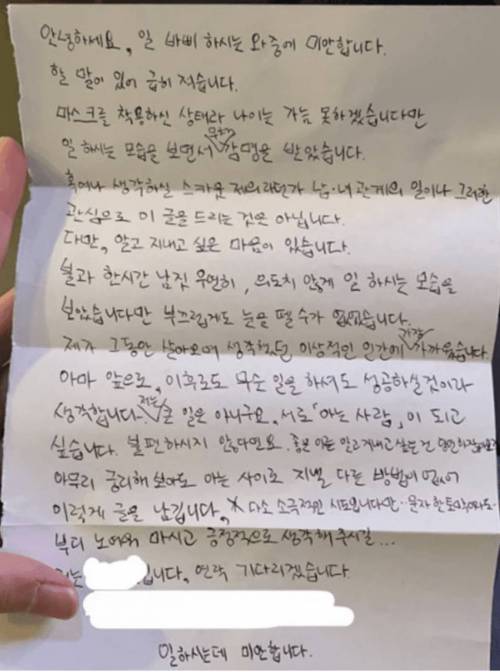 안녕하세요, 일 바삐 하시는 와중에 미안합니다.
할 말이 있어 급히 적습니다.
마스크를 착용하신 상태라 나이는 가늠 못하겠습니다만
일 하시는 모습을 보면서 무척 감명을 받았습니다.
혹여나 생각하실 스카웃 제의라던가 남·녀 관계의 일이나 그러한
관심으로 이 글을 드리는 것은 아닙니다.
다만, 알고 지내고 싶은 마음이 있습니다.
불과 한시간 남짓 우연히, 의도치 않게 일 하시는 모습을
보았습니다만 부끄럽게도 눈을 뗄 수가 없었습니다.
제가 그동안 살아오며 생각했던 이상적인 인간에 가장 가까웠습니다
아마 앞으로, 이후로도 무슨 일을 하셔도 성공하실것이라
생각합니다. 저는 큰 일은 아니구요, 서로 「아는 사람」이 되고
싶습니다. 불편하시지 않다면요. 좋은 이를 알고지내고 싶은건
아무리 궁리해 보아도 아는 사이로 지낼 다른 방법이 없어
이렇게 글을 남깁니다. 다소 소극적인 시도입니다만·문자 한
부디 노여워 마시고 긍정적으로 생각해 주시길...
입니다. 연락 기다리겠습니다.
일하시는데 미안합니다.